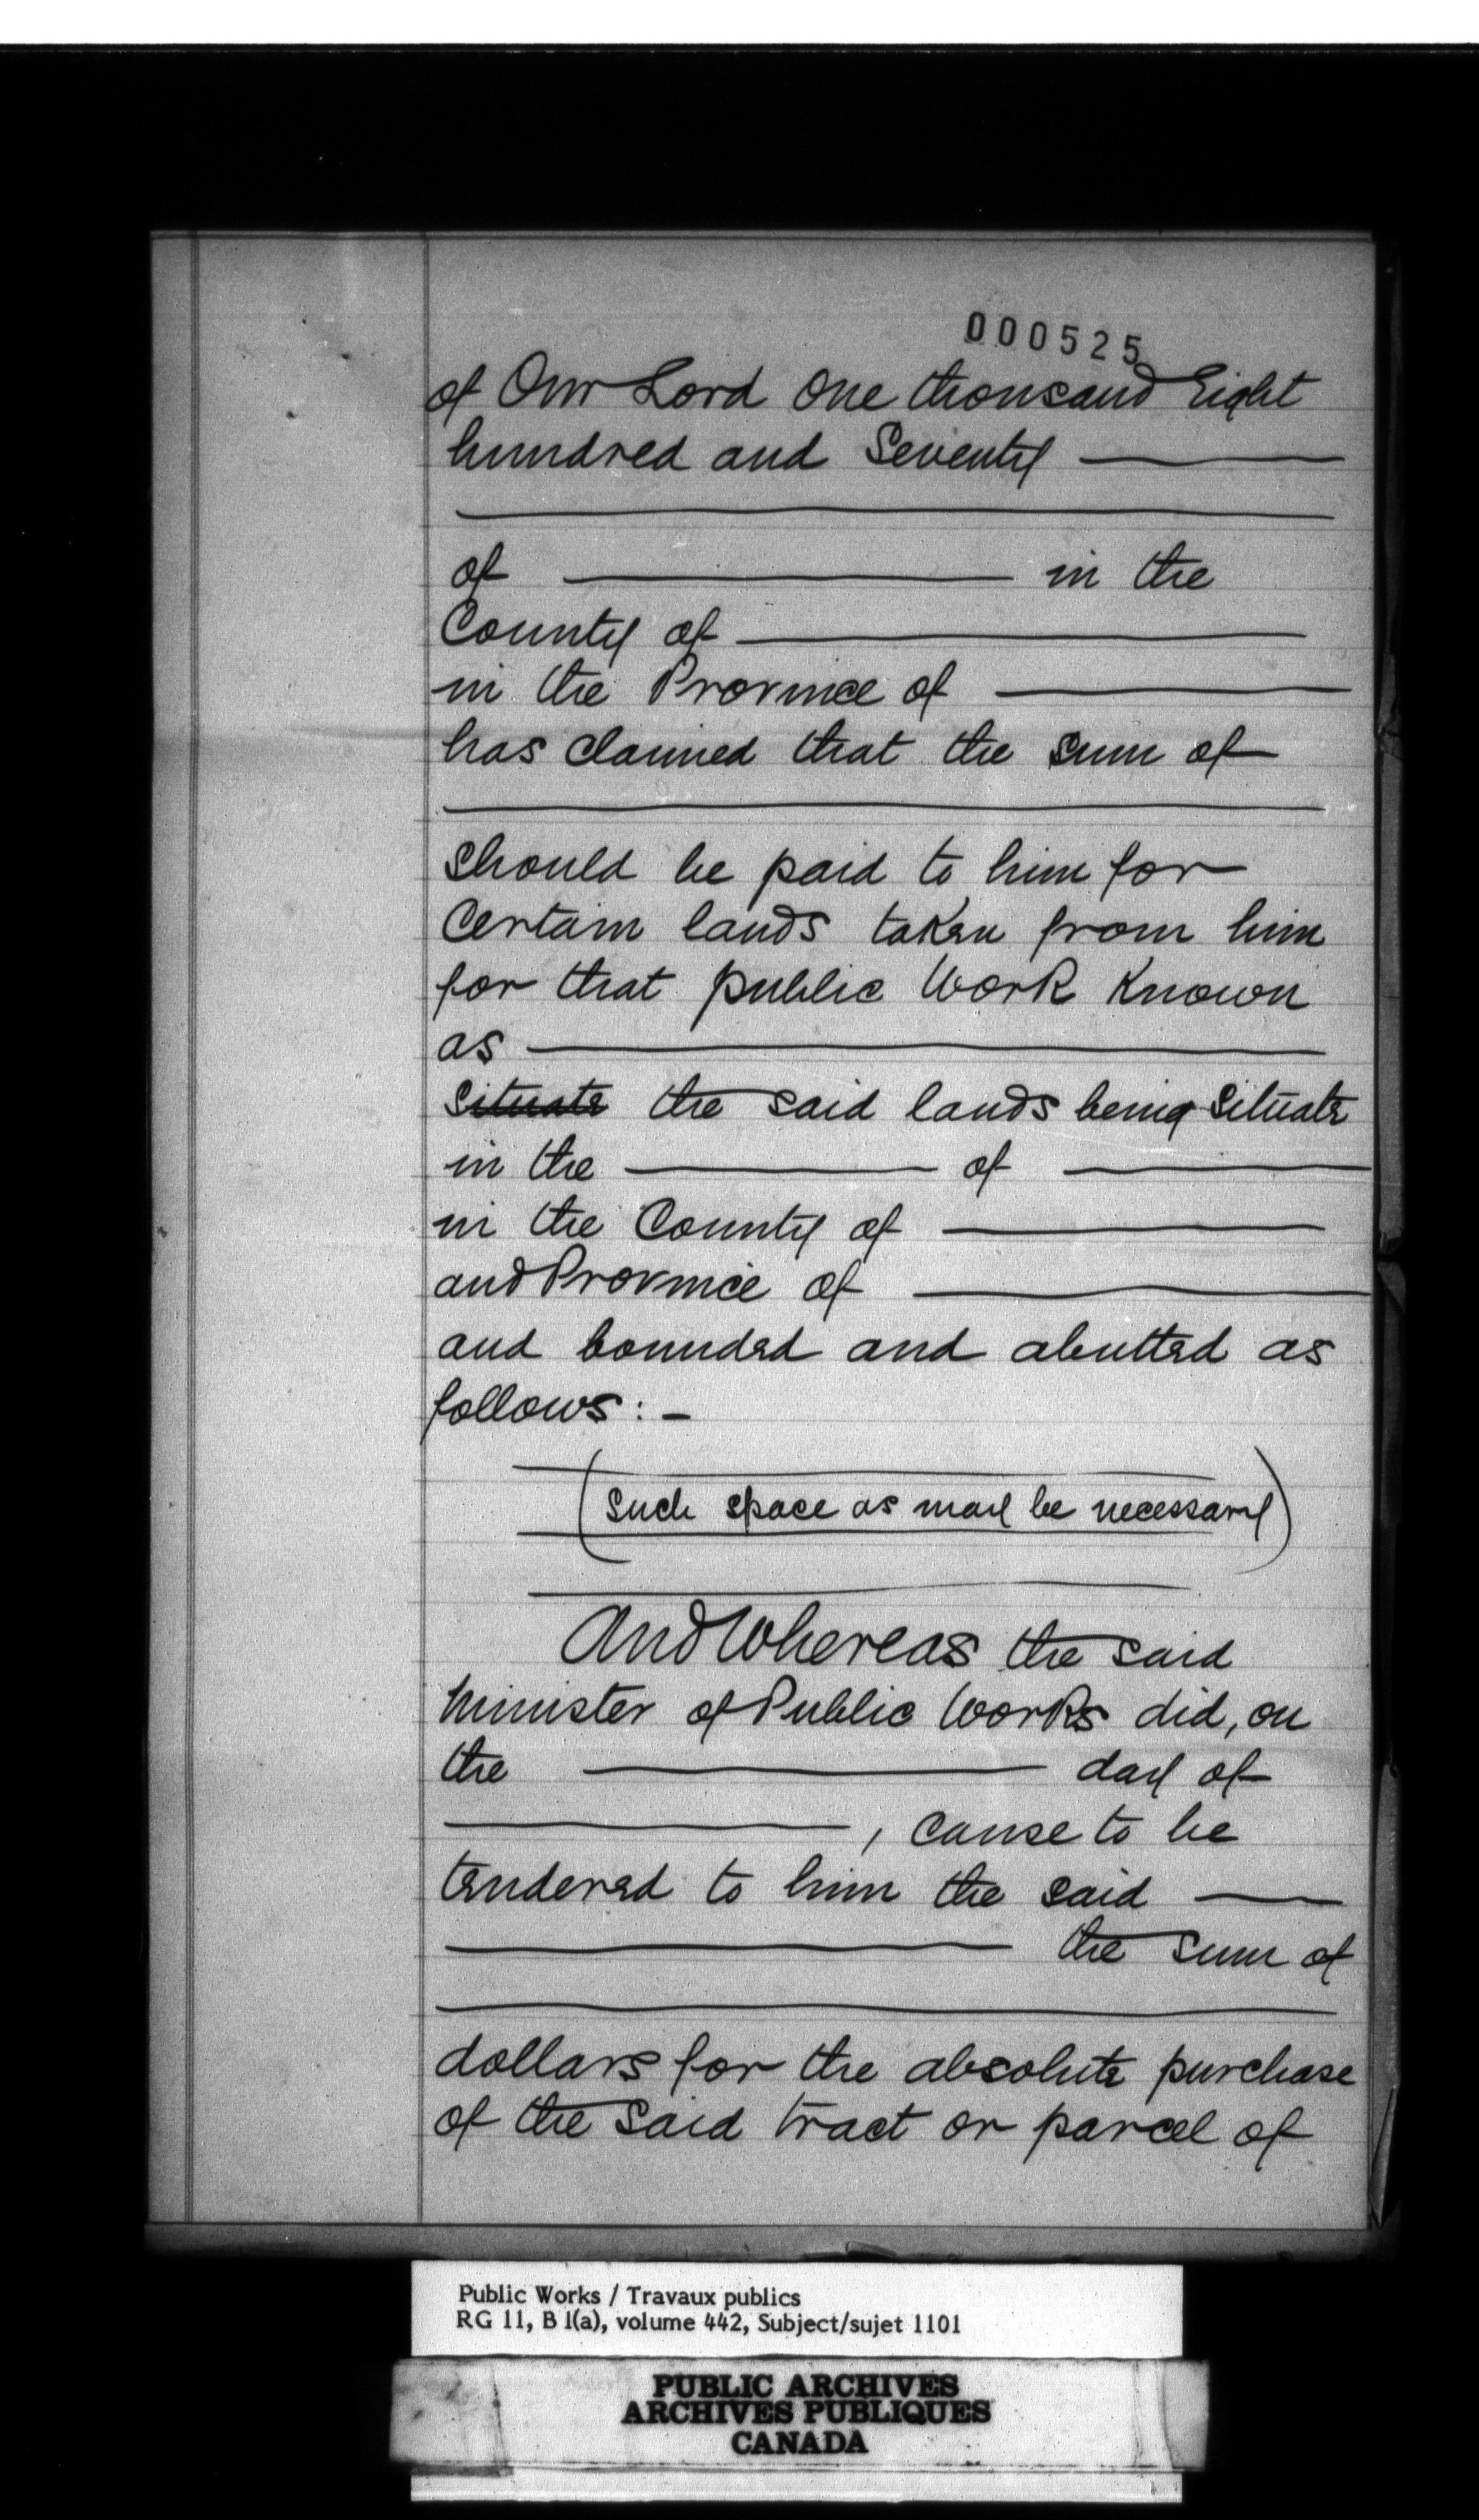 000525
of Our Lord One thousand Eight
hundred and Seventy ———
———
of ——— in the
County of ———
in the Province of ———
has claimed that the sum of
———
should be paid to him for
Certain lands taken from him
for that public Work Known
as ———
Situate the said lands being Situate
in the ——— of ———
in the County of ———
and Province of ———
and bounded and abutted as
follows : –
(such space as may be necessary)
And Whereas the said
Minister of Public Works did, on
the ——— day of
———, cause to be
tendered to him the said ———
——— the sum of
———
dollars for the absolute purchase
of the said tract or parcel of
Public Works / Travaux publics
RG 11, B 1(a), volume 442, Subject/sujet 1101
PUBLIC ARCHIVES
ARCHIVES PUBLIQUES
CANADA